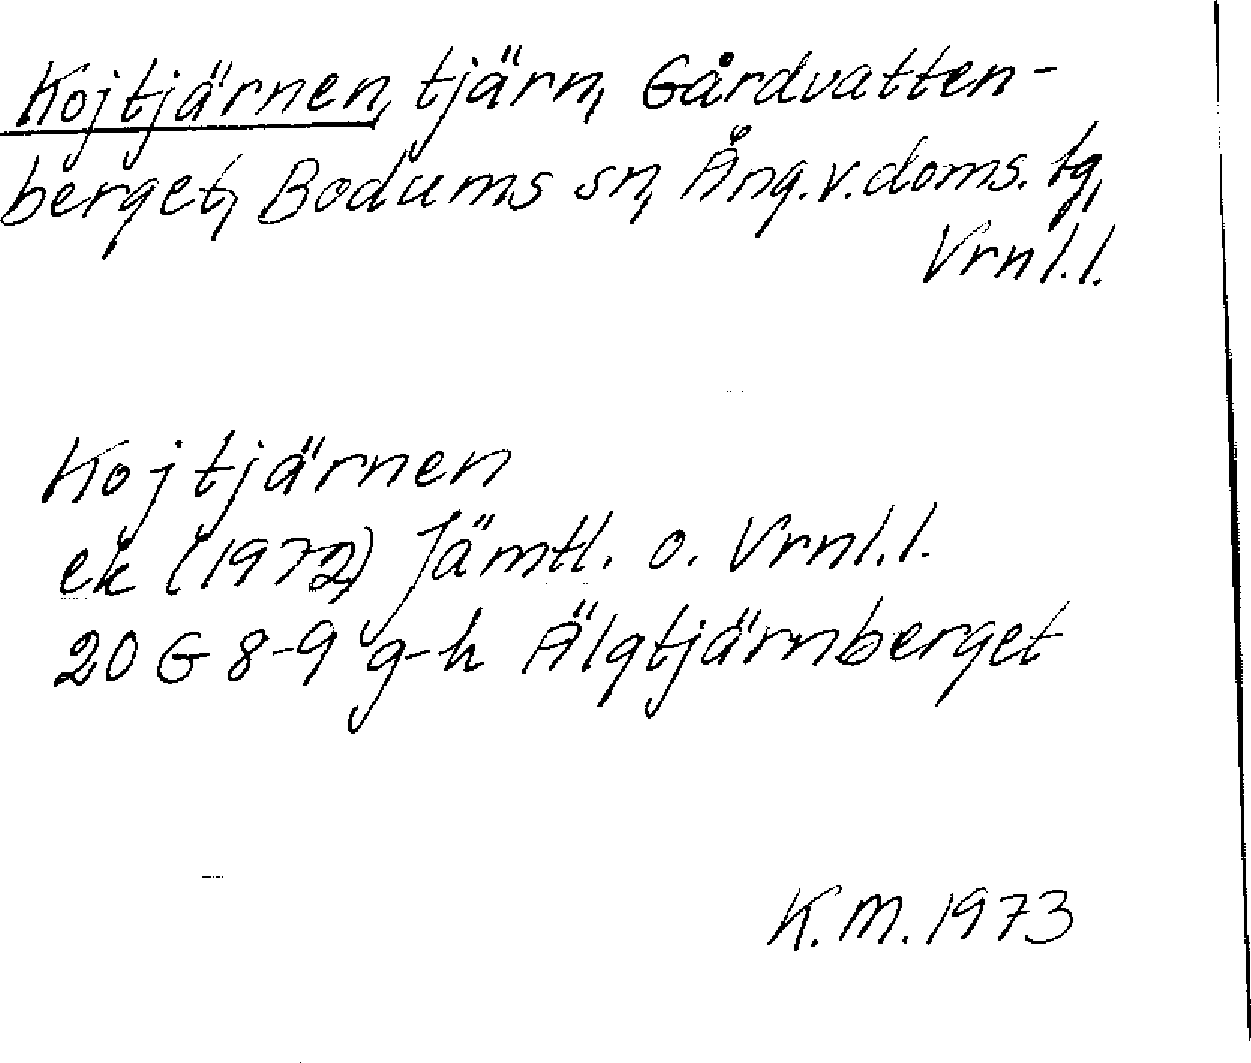 Kojtjärnen, tjärn, Gårdvatten-
berget, Bodums sn, Ång.v.doms. tg,
Vrnl.l.
Kojtjärnen
ek (1972) Jämtl. o. Vrnl.l.
20 G 8-9 g-h Älgtjärnberget
K.M. 1973